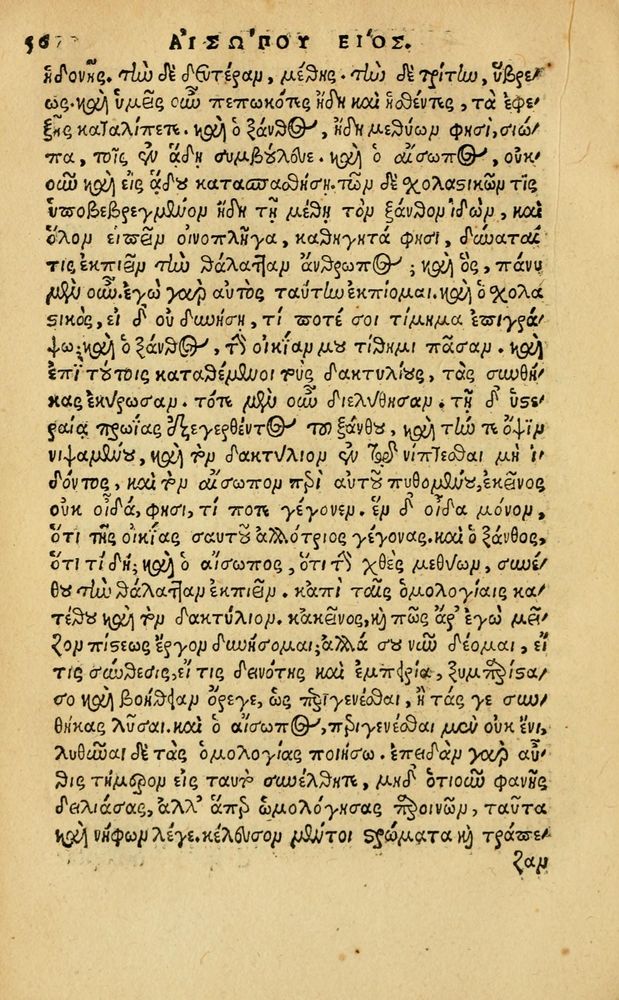 56 ΑΙΣΩΠΟΥ ΒΙΟΣ.
ἡδονῆς. τὴν δὲ δευτέραν, μέθης. τὴν δὲ τρίτην, ὕβρε-
ως. καὶ ὑμεῖς οὖν πεπωκότες ἤδη καὶ ἡσθέντες, τὰ ἐφε-
ξῆς καταλίπετε. καὶ ὁ ξάνθος, ἤδη μεθύων φησὶ, σιώ-
πα, τοῖς ἐν ᾅδῃ συμβούλευε. καὶ ὁ αἴσωπος, οὐκ-
οῦν καὶ εἰς ᾅδου κατασπασθήσῃ. τῶν δὲ σχολαστικῶν τὶς
ὑποβεβρεγμένον ἤδη τῇ μέθῃ τὸν ξάνθον ἰδὼν, καὶ
ὅλον εἰπεῖν οἰνοπλῆγα, καθηγητά φησι, δύναταί
τις ἐκπιεῖν τὴν θάλατταν ἄνθρωπος; καὶ ὃς, πάνυ
μὲν οὖν. ἐγὼ γὰρ αὐτὸς ταύτην ἐκπίομαι. καὶ ὁ σχολα
στικὸς, εἰ δ' οὐ δυνήσῃ, τί ποτέ σοι τίμημα ἐπιγρά-
ψω; καὶ ὁ ξάνθος, τὴν οἰκίαν μου τίθημι πᾶσαν. καὶ
ἐπὶ τούτοις καταθέμενοι τοὺς δακτυλίους, τὰς συνθή-
κας ἐκύρωσαν. τότε μὲν οὖν διελύθησαν. τῇ δ' ὑστε-
ραίᾳ πρωΐας ἐξεγερθέντος τοῦ ξάνθου, καὶ τήν τε ὄψιν
νιψαμένου, καὶ τὸν δακτύλιον ἐν τῷ νίπτεσθαι μὴ ἰ-
δόντος, καὶ τὸν αἴσωπον περὶ αὐτοῦ πυθομένου, ἐκεῖνος
οὐκ οἶδά, φησι, τί ποτε γέγονεν. ἓν δ' οἶδα μόνον,
ὅτι τῆς οἰκίας σαυτοῦ ἀλλότριος γέγονας. καὶ ὁ ξάνθος,
ὅτι τί δή; καὶ ὁ αἴσωπος, ὅτι τῇ χθὲς μεθύων, συνέ-
θου τὴν θάλατταν ἐκπιεῖν. κἀπὶ ταῖς ὁμολογίαις κα-
τέθου καὶ τὸν δακτύλιον. κἀκεῖνος, καὶ πῶς ἄρ' ἐγὼ μεῖ-
ζον πίστεως ἔργον δυνήσομαι; ἀλλά σου νῦν δέομαι, εἴ
τις σύνθεσις, εἴ τις δεινότης καὶ ἐμπειρία, ξυμπρᾶξα-
σο καὶ βοήθειαν ὄρεγε, ὡς περιγενέσθαι, ἢ τάς γε συν-
θήκας λῦσαι. καὶ ὁ αἴσωπος, περιγενέσθαι μὲν οὐκ ἔνι,
λυθῆναι δὲ τὰς ὁμολογίας ποιήσω. ἐπειδὰν γὰρ αὖ-
θις τήμερον εἰς ταὐτὸ συνέλθητε, μηδ' ὁτιοῦν φανῇς
δειλιάσας, ἀλλ' ἅπερ ὡμολόγησας παροινῶν, ταῦτα
καὶ νήφων λέγε. κέλευσον μέντοι στρώματα καὶ τράπε-
ζαν